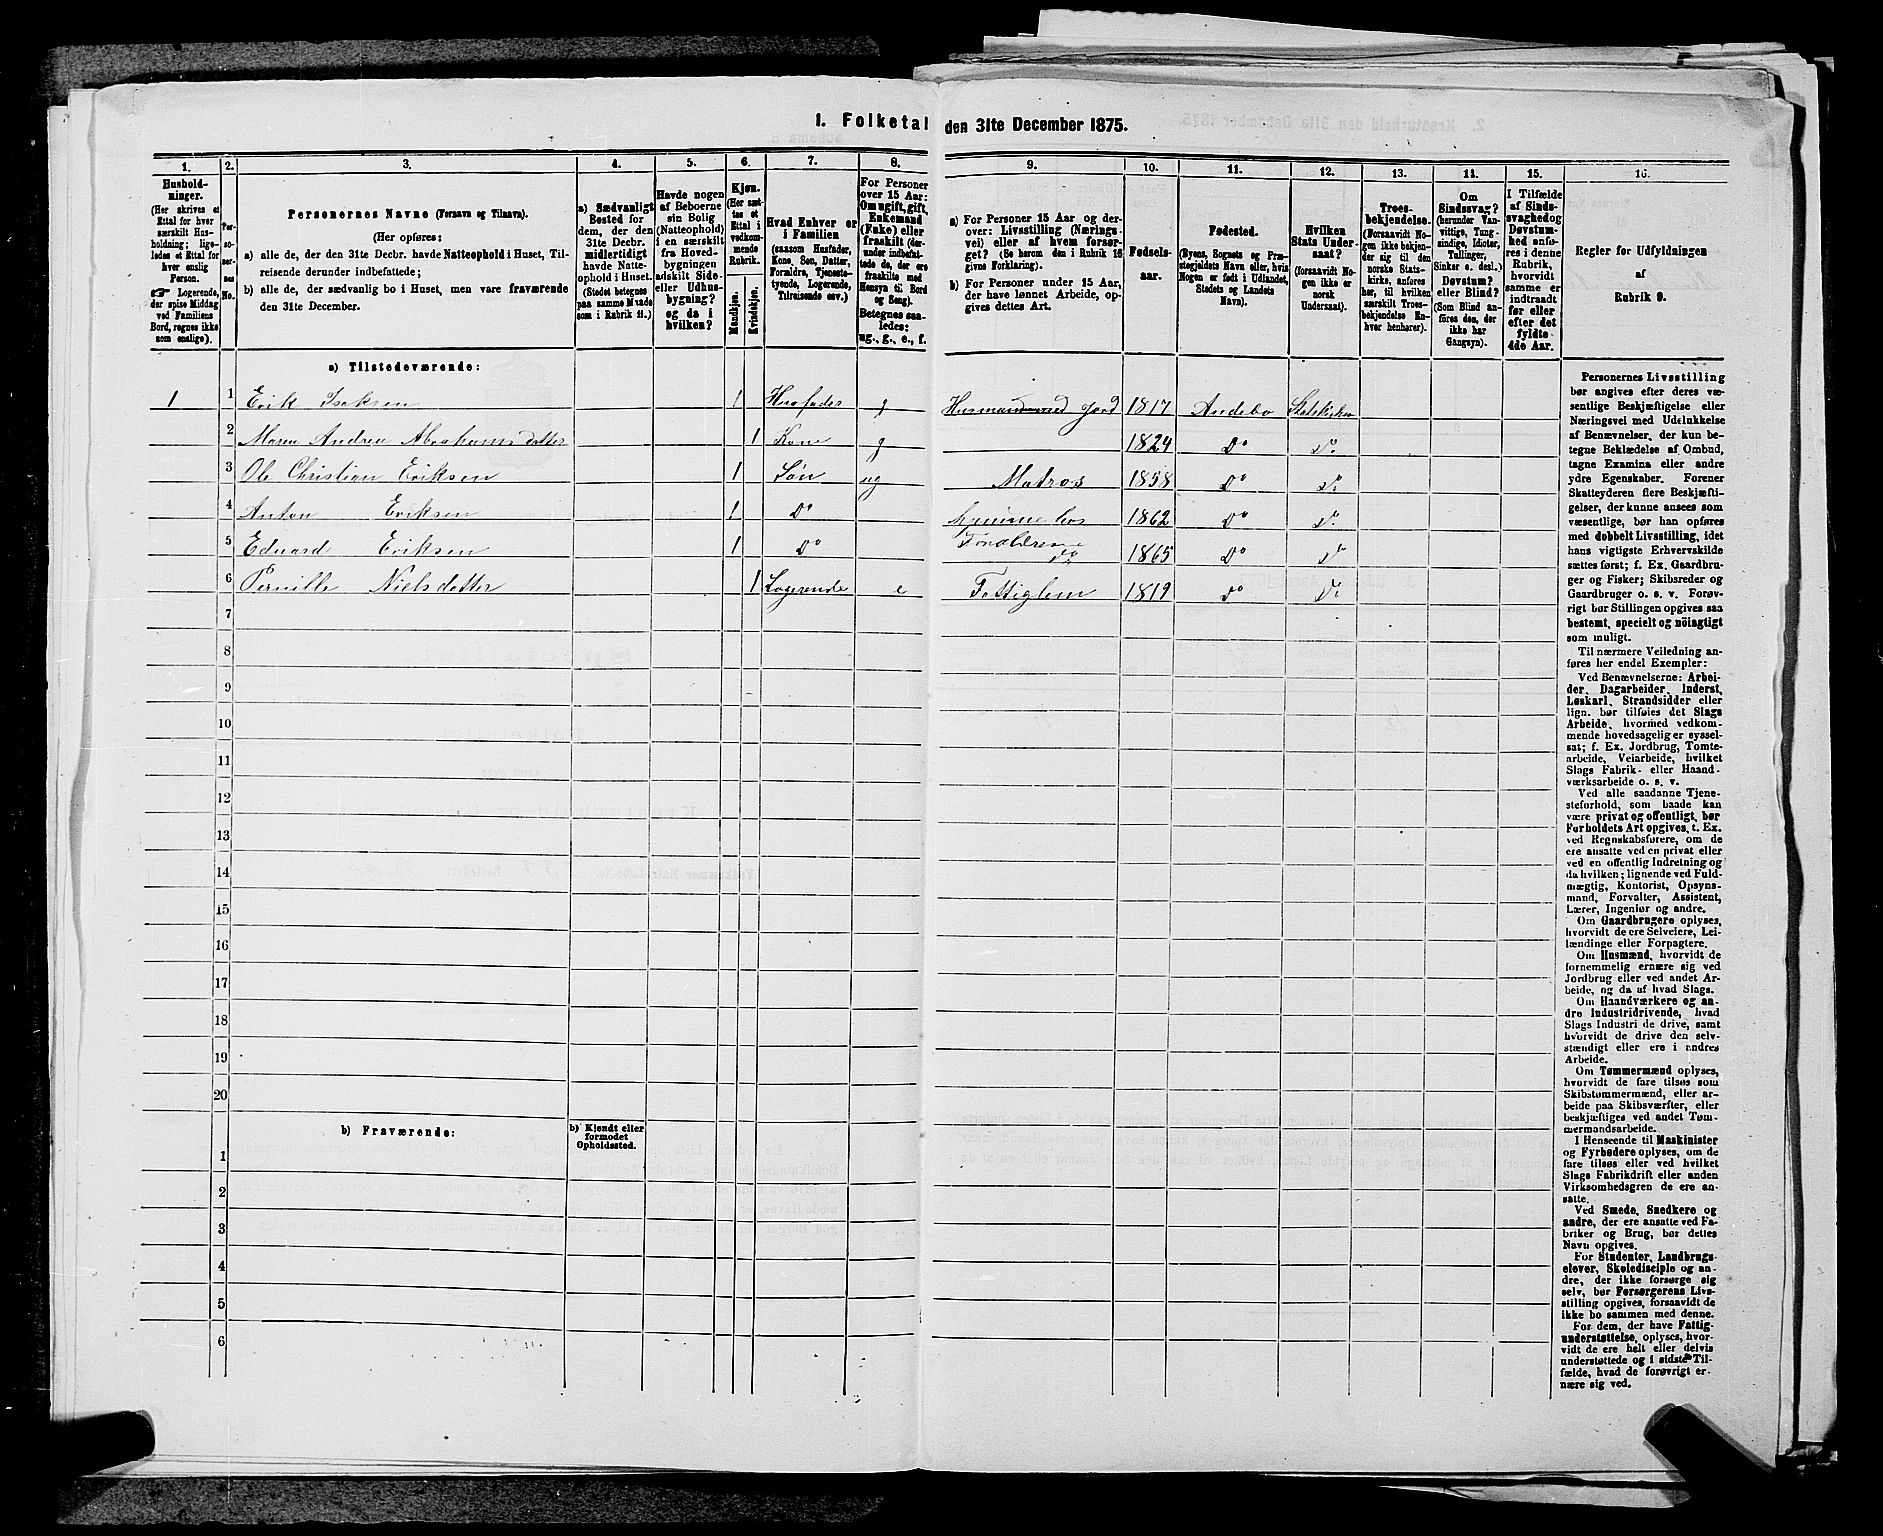 1. Folketal den 31te December 1875.
1. 2. 3. 4. 5. 6. 7. 8. 9. 10. 11. 12. 13. 14. 15. 16.
Hushold-
ninger.
(Her skrives et
Ettal for hver
særskilt Hus-
holdning; lige-
ledes et Ettal for
hver enslig
Person.
☞ Logerende,
der spise Middag
ved Familiens
Bord, regnes ikke
som enslige).
Per-
so-
ner-
nes
No.
Personernes Navne (Fornavn og Tilnavn).
(Her opføres:
a) alle de, der den 31te Decbr. havde Natteophold i Huset, Til-
reisende derunder indbefattede;
b) alle de, der sædvanlig bo i Huset, men vare fraværende
den 31te December.
a) Sædvanligt
Bosted for
dem, der den
31te Decbr.
midlertidigt
havde Natte-
ophold i Huset.
(Stedet betegnes
paa samme Maade
som i Rubrik 11.)
Havde nogen
af Beboerne
sin Bolig
(Natteophold)
i en særskilt
fra Hoved-
bygningen
adskilt Side-
eller Udhus-
bygning?
og da i
hvilken?
Kjøn.
(Her sæt-
tes et
Ettal i
vedkom-
mende
Rubrik.
Mandkjøn.
Kvindekjøn.
Hvad Enhver er
i Familien
(saasom Husfader,
Kone, Søn, Datter,
Forældre, Tjeneste-
tyende, Logerende,
Tilreisende osv.)
For Personer
over 15 Aar:
Om ugift, gift,
Enkemand
(Enke) eller
fraskilt (der-
under indbefat-
tede de, der ere
fraskilte med
Hensyn til Bord
og Seng).
Betegnes saa-
ledes:
ug., g., e., f.
a) For Personer 15 Aar og der-
over: Livsstilling (Nærings-
vei) eller af hvem forsør-
get? (Se herom den i Rubrik 16
givne Forklaring).
b) For Personer under 15 Aar,
der have lønnet Arbeide, op-
gives dettes Art.
Fødsels-
aar.
Fødested.
(Byens, Sognets og Præ-
stegjeldets Navn eller, hvis
Nogen er født i Udlandet,
Stedets og Landets
Navn).
Hvilken
Stats Under-
saat?
(forsaavidt No-
gen ikke er
norsk
Undersaat).
Troes-
bekjendelse.
(Forsaavidt No-
gen ikke bekjen-
der sig til den
norske Stats-
kirke, anføres
her, til hvilken
særskilt Troes-
bekjendelse En-
hver henhører).
Om
Sindssvag?
(herunder Van-
vittige, Tung-
sindige, Idioter,
Tullinger,
Sinker o. desl.)
Døvstum?
eller Blind?
(Som Blind an-
føres den, der
ikke har
Gangsyn).
I Tilfælde
af Sinds-
svaghed og
Døvstum-
hed anfø-
res i denne
Rubrik,
hvorvidt
samme er
indtraadt
før eller
efter det
fyldte
4de Aar.
Regler for Udfyldningen
af
Rubrik 9.
a) Tilstedeværende:
1 1 Erik Isaksen 1 Husfader g Husmand med Jord 1817 Andebo Statskirken
2 Maren Andrea Abrahamsdatter 1 Kone g 1824 Do Do
3 Ole Christian Eriksen 1 Søn ug Matros 1858 Do Do
4 Anton Eriksen 1 Do hjemme hos 1862 Do Do
5 Edvard Eriksen 1 Do Forældrene do 1865 Do Do
6 Pernille Nielsdatter 1 Logerende e Fattiglem 1819 Do Do
7
8
9
10
11
12
13
14
15
16
17
18
19
20
b) Fraværende:
b) Kjendt eller
formodet
Opholdssted.
1
2
3
4
5
6
Personernes Livsstilling
bør angives efter deres væ-
sentlige Beskjæftigelse eller
Næringsvei med Udelukkelse
af Benævnelser, der kun be-
tegne Beklædelse af Ombud,
tagne Examina eller andre
ydre Egenskaber. Forener
Skatteyderen flere Beskjæfti-
gelser, der kunne ansees som
væsentlige, bør han opføres
med dobbelt Livsstilling, idet
hans vigtigste Erhvervskilde
sættes først; f. Ex. Gaardbru-
ger og Fisker; Skibsreder og
Gaardbruger o. s. v. Forøv-
rigt bør Stillingen opgives saa
bestemt, specielt og nöiagtigt
som muligt.
Til nærmere Veiledning an-
føres her endel Exempler:
Ved Benævnelserne: Arbei-
der, Dagarbeider, Inderst,
Løskarl, Strandsidder eller
lign. bør tilføies det Slags
Arbeide, hvormed vedkom-
mende hovedsagelig er syssel-
sat; f. Ex. Jordbrug, Tomte-
arbeide, Veiarbeide, hvilket
Slags Fabrik- eller Haand-
værksarbeide o. s. v.
Ved alle saadanne Tjene-
steforhold, som baade kan
være privat og offentligt, bør
Forholdets Art opgives, t. Ex.
ved Regnskabsførere, om de
ere ansatte ved en privat eller
ved en offentlig Indretning og
da hvilken; lignende ved Fuld-
mægtig, Kontorist, Opsyns-
mand, Forvalter, Assistent,
Lærer, Ingeniør og andre.
Om Gaardbrugere oplyses,
hvorvidt de ere Selveiere, Lei-
lændinge eller Forpagtere.
Om Husmænd, hvorvidt de
fornemmelig ernære sig ved
Jordbrug eller ved andet Ar-
beide, og da af hvad Slags.
Om Haandværkere og an-
dre Industridrivende, hvad
Slags Industri de drive, samt
hvorvidt de drive den selv-
stændigt eller ere i andres
Arbeide.
Om Tømmermænd oplyses,
hvorvidt de fare tilsøs som
Skibstømmermænd, eller ar-
beide paa Skibsværfter, eller
beskjæftiges ved andet Tøm-
mermandsarbeide.
I Henseende til Maskinister
og Fyrbødere oplyses, om de
fare tilsøs eller ved hvilket
Slags Fabrikdrift eller anden
Virksomhedsgren de ere an-
satte.
Ved Smede, Snedkere og
andre, der ere ansatte ved Fa-
briker og Brug, bør dettes
Navn opgives.
For Studenter, Landbrugs-
elever, Skoledisciple og an-
dre, der ikke forsørge sig
selv, bør Forsørgerens Livs-
stilling opgives, forsaavidt de
ikke bo sammen med denne.
For dem, der have Fattig-
understøttelse, oplyses, hvor-
vidt de ere helt eller delvis
understøttede og i sidste Til-
fælde, hvad de forøvrigt er-
nære sig ved.